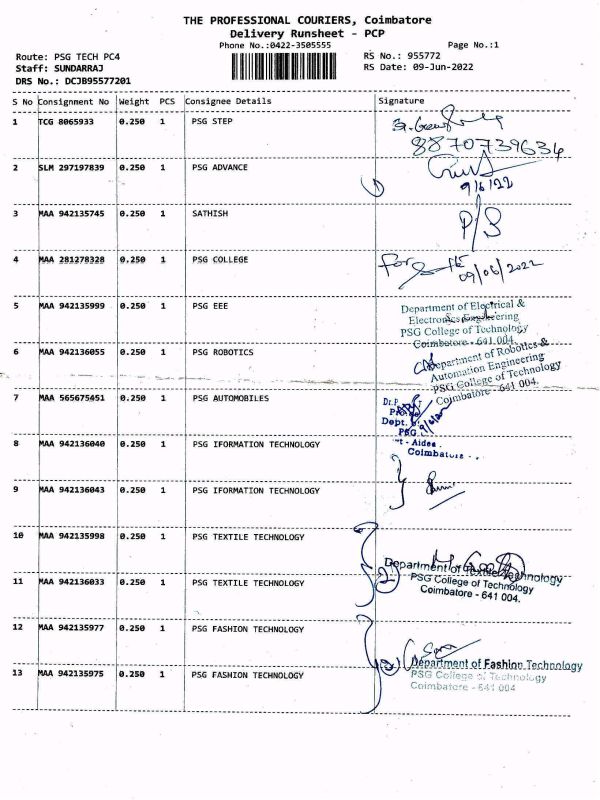 THE PROFESSIONAL COURIERS, Coimbatore
Delivery Runsheet - PCP
Phone No.:0422-3505555
Page No.:1
Route: PSG TECH PC4
RS No.: 955772
Staff: SUNDARRAJ
RS Date: 09-Jun-2022
DRS No.: DCJB95577201
S No Consignment No Weight PCS Consignee Details Signature
1 TCG 8065933 0.250 1 PSG STEP
8870739634
2 SLM 297197839 0.250 1 PSG ADVANCE
9/6/22
3 MAA 942135745 0.250 1 SATHISH
P/S
4 MAA 281278328 0.250 1 PSG COLLEGE
for
09/06/2022
5 MAA 942135999 0.250 1 PSG EEE
Department of Electrical &
Electronics Engineering
PSG College of Technology
Coimbatore - 641 004.
6 MAA 942136055 0.250 1 PSG ROBOTICS
Department of Robotics &
Automation Engineering
PSG College of Technology
Coimbatore - 641 004.
7 MAA 565675451 0.250 1 PSG AUTOMOBILES
Dept.
PSG
Coimbatore
8 MAA 942136040 0.250 1 PSG IFORMATION TECHNOLOGY
9 MAA 942136043 0.250 1 PSG IFORMATION TECHNOLOGY
10 MAA 942135998 0.250 1 PSG TEXTILE TECHNOLOGY
Department of Textile Technology
11 MAA 942136033 0.250 1 PSG TEXTILE TECHNOLOGY
2
PSG College of Technology
Coimbatore - 641 004.
12 MAA 942135977 0.250 1 PSG FASHION TECHNOLOGY
2
Department of Fashion Technology
13 MAA 942135975 0.250 1 PSG FASHION TECHNOLOGY
PSG College of Technology
Coimbatore - 641 004